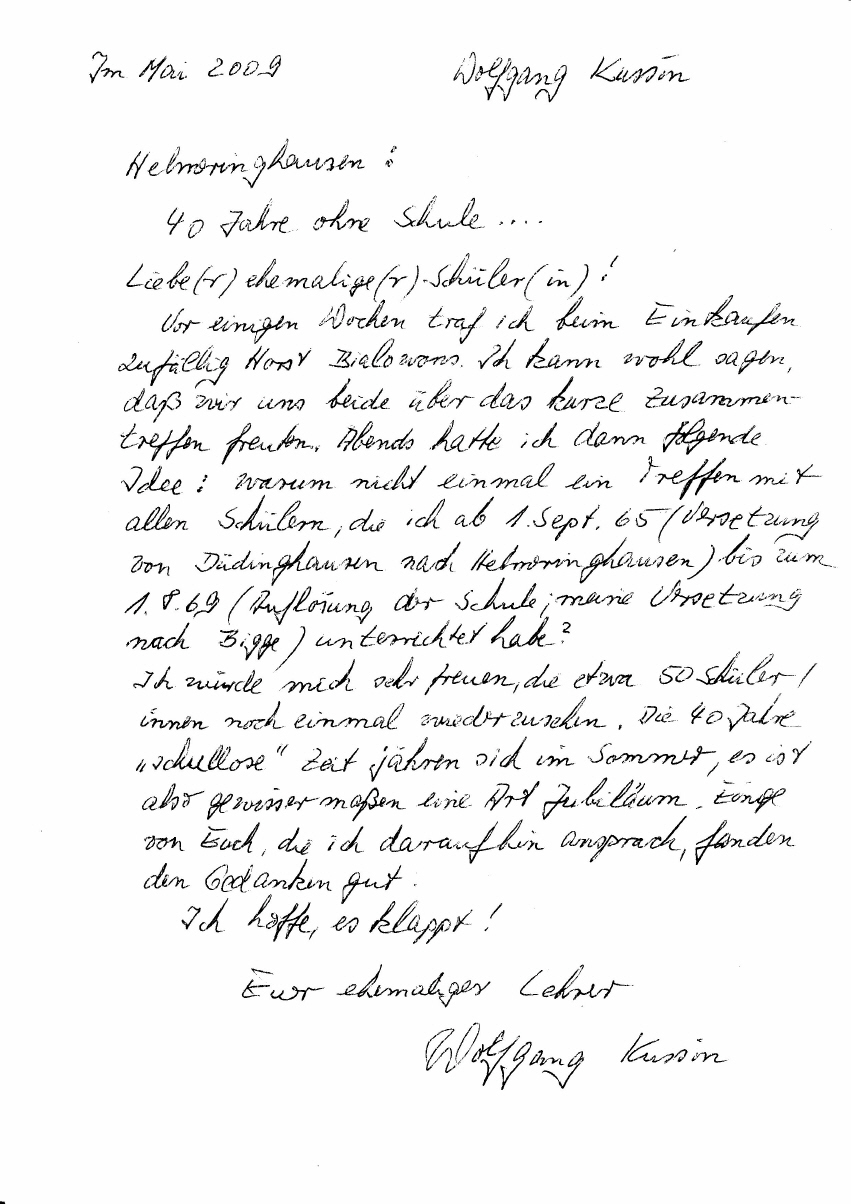 Im Mai 2009 Wolfgang Kussin
Helmeringhausen :
40 Jahre ohne Schule ....
Liebe(r) ehemalige(r) Schüler(in)!
Vor einigen Wochen traf ich beim Einkaufen
zufällig Horst Bialowons. Ich kann wohl sagen,
daß wir uns beide über das kurze Zusammen-
treffen freuten. Abends hatte ich dann folgende
Idee: warum nicht einmal ein Treffen mit
allen Schülern, die ich ab 1. Sept. 65 (Versetzung
von Düdinghausen nach Helmeringhausen) bis zum
1. 8. 69 (Auflösung der Schule; meine Versetzung
nach Bigge) unterrichtet habe?
Ich würde mich sehr freuen, die etwa 50 Schüler/
innen noch einmal wiederzusehen. Die 40 Jahre
„schullose“ Zeit jähren sich im Sommer, es ist
also gewissermaßen eine Art Jubiläum. Einige
von Euch, die ich daraufhin ansprach, fanden
den Gedanken gut.
Ich hoffe, es klappt!
Euer ehemaliger Lehrer
Wolfgang Kussin